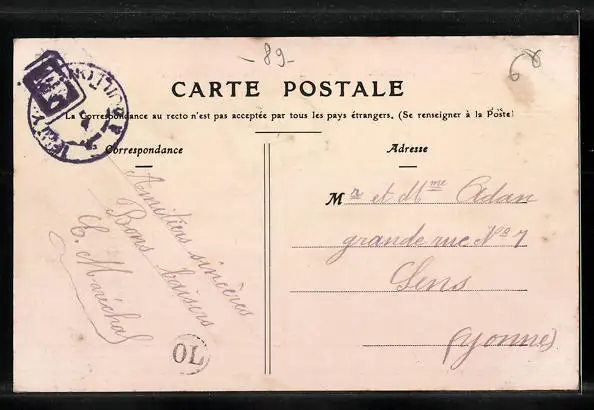 -89-
68
CARTE POSTALE
La Correspondance au recto n'est pas acceptée par tous les pays étrangers. (Se renseigner à la Poste)
Correspondance
Adresse
Amitiés sincères
Bons baisers
C. Maréchal
OL
Mr et Mme Adan
grande rue No 7
Sens
(Yonne)